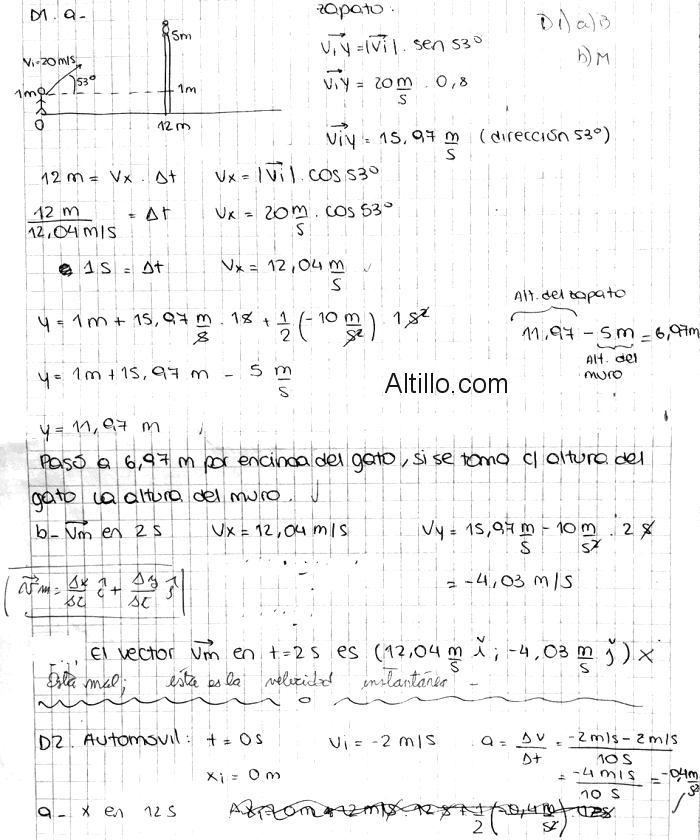 D1. a-
zapato:
D1) a) B
b) M
5m
Vi=20m/s
53°
1m
1m
0
12m
Viy = |Vi| . sen 53°
Viy = 20 m/s . 0,8
Viy = 15,97 m/s (dirección 53°)
12m = Vx . Δt
Vx = |Vi| . cos 53°
12 m / 12,04 m/s = Δt
Vx = 20 m/s . cos 53°
1s = Δt
Vx = 12,04 m/s
y = 1m + 15,97 m/s . 1s + 1/2 (-10 m/s²) . 1s²
Alt. del zapato
11,97 - 5m = 6,97m
Alt. del muro
y = 1m + 15,97 m - 5 m/s
Altillo.com
y = 11,97 m
Pasó a 6,97 m por encima del gato, si se toma c/ altura del
gato la altura del muro.
b- Vm en 2s
Vx = 12,04 m/s
Vy = 15,97 m/s - 10 m/s² . 2 s
= -4,03 m/s
Vm = Δx/Δt i + Δy/Δt j
El vector Vm en t=2s es (12,04 m/s i ; -4,03 m/s j) x
Está mal; esta es la velocidad instantánea -
D2. Automovil: t = 0s
Vi = -2 m/s
a = ΔV/Δt = -2m/s - 2m/s / 10s
xi = 0m
= -4 m/s / 10 s = -0,4 m/s²
a- x en 12s